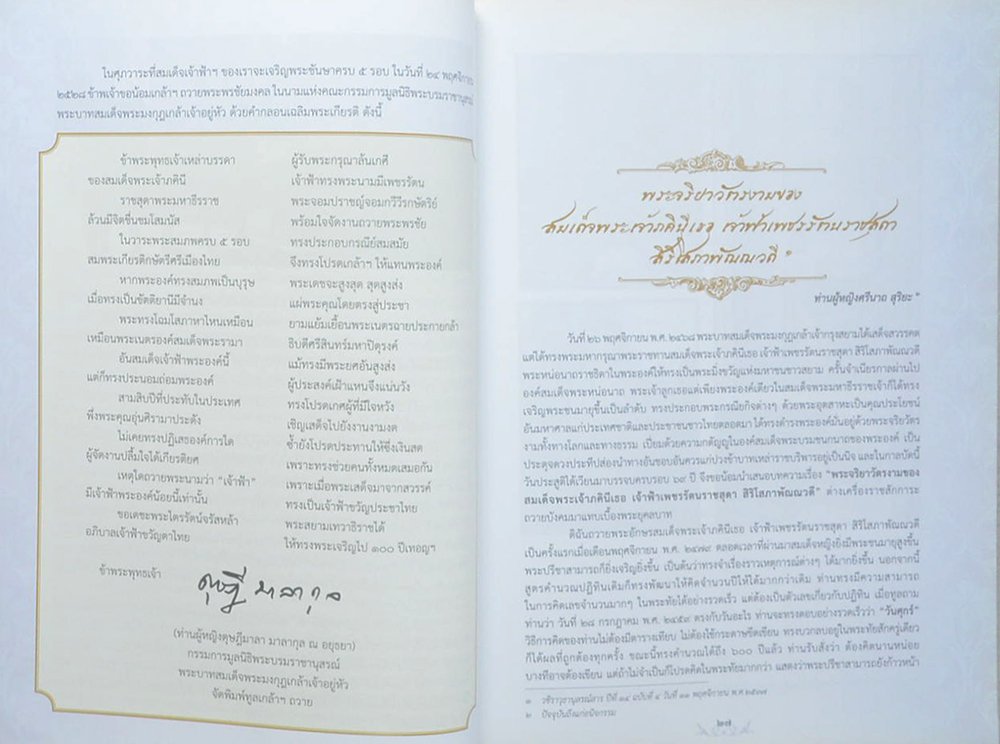 ในศุภวาระที่สมเด็จเจ้าฟ้าฯ ของเราจะเจริญพระชันษาครบ ๕ รอบ ในวันที่ ๒๔ พฤศจิกายน
๒๕๒๘ ข้าพเจ้าขอน้อมเกล้าฯ ถวายพระพรชัยมงคล ในนามแห่งคณะกรรมการมูลนิธิพระบรมราชานุสรณ์
พระบาทสมเด็จพระมงกุฎเกล้าเจ้าอยู่หัว ด้วยคำกลอนเฉลิมพระเกียรติ ดังนี้
ข้าพระพุทธเจ้าเหล่าบรรดา ผู้รับพระกรุณาล้นเกศี
ของสมเด็จพระเจ้าภคินี เจ้าฟ้าทรงพระนามมีเพชรรัตน
ราชสุดาพระมะหาธีรราช พระจอมปราชญ์จอมกวีวีรกษัตริย์
ล้วนมีจิตชื่นชมโสมนัส พร้อมใจจัดงานถวายพระพรชัย
ในวาระพระสมภพครบ ๕ รอบ ทรงประกอบกรณีย์สมสมัย
สมพระเกียรติกษัตรีศรีเมืองไทย จึงทรงโปรดเกล้าฯ ให้แทนพระองค์
หากพระองค์ทรงสมภพเป็นบุรุษ พระเดชจะสูงสุด สุดสูงส่ง
เมื่อทรงเป็นขัตติยานีมีจำนง แผ่พระคุณโดยตรงสู่ประชา
พระทรงโฉมโสภาหาไหนเหมือน ยามแย้มเยื้อนพระเนตรฉายประกายกล้า
เหมือนพระเนตรองค์สมเด็จพระรามา ธิบดีศรีสินทร์มหาปิตุรงค์
อันสมเด็จเจ้าฟ้าพระองค์นี้ แม้ทรงมีพระยศอันสูงส่ง
แต่ก็ทรงประนอมถ่อมพระองค์ ผู้ประสงค์เฝ้าแหนจึงแน่นวัง
สามสิบปีที่ประทับในประเทศ ทรงโปรดเกศผู้ที่มีใจหวัง
พึ่งพระคุณอุ่นศิรามาประดัง เชิญเสด็จไปยังงานงามงด
ไม่เคยทรงปฏิเสธองค์การใด ซ้ำยังโปรดประทานให้ซึ่งเงินสด
ผู้จัดงานปลื้มใจได้เกียรติยศ เพราะทรงช่วยคนทั้งหมดเสมอกัน
เหตุใดถวายพระนามว่า "เจ้าฟ้า" เพราะเมื่อพระเสด็จมาจากสวรรค์
มีเจ้าฟ้าพระองค์น้อยนี้เท่านั้น ทรงเป็นเจ้าฟ้าขวัญประชาไทย
ขอเดชะพระไตรรัตน์จรัสหล้า พระสยามเทวาธิราชได้
อภิบาลเจ้าฟ้าขวัญดาไทย ให้ทรงพระเจริญไป ๑๐๐ ปีเทอญฯ
ข้าพระพุทธเจ้า
ดุษฎี มาลากุล
(ท่านผู้หญิงดุษฎีมาลา มาลากุล ณ อยุธยา)
กรรมการมูลนิธิพระบรมราชานุสรณ์
พระบาทสมเด็จพระมงกุฎเกล้าเจ้าอยู่หัว
จัดพิมพ์ทูลเกล้าฯ ถวาย
พระจริยาวัตรงามของ
สมเด็จพระเจ้าภคินีเธอ เจ้าฟ้าเพชรรัตนราชสุดา
สิริโสภาพัณณวดี ๑
ท่านผู้หญิงศรีนาถ สุริยะ ๒
วันที่ ๒๖ พฤศจิกายน พ.ศ. ๒๔๖๘ พระบาทสมเด็จพระมงกุฎเกล้าเจ้ากรุงสยามได้เสด็จสวรรคต
แต่ได้ทรงพระมหากรุณาพระราชทานสมเด็จพระเจ้าภคินีเธอ เจ้าฟ้าเพชรรัตนราชสุดา สิริโสภาพัณณวดี
พระหน่อนาถราชธิดาในพระองค์ให้ทรงเป็นพระมิ่งขวัญแห่งมหาชนชาวสยาม ครั้นจำเนียรกาลผ่านไป
องค์สมเด็จพระหน่อนาถ พระเจ้าลูกเธอแต่เพียงพระองค์เดียวในสมเด็จพระมหาธีรราชเจ้าก็ได้ทรง
เจริญพระชนมายุขึ้นเป็นลำดับ ทรงประกอบพระกรณียกิจต่างๆ ด้วยพระอุตสาหะเป็นคุณประโยชน์
อันมหาศาลแก่ประเทศชาติและประชาชนชาวไทยตลอดมา ได้ทรงดำรงพระองค์มั่นอยู่ด้วยพระจริยวัตร
งามทั้งทางโลกและทางธรรม เปี่ยมด้วยความกตัญญูในองค์สมเด็จพระบรมชนกนาถของพระองค์ เป็น
ประดุจดวงประทีปส่องนำทางอันชอบอันควรแก่ปวงข้าบาทเหล่าราชบริพารอยู่เป็นนิจ และในกาลบัดนี้
วันประสูติได้เวียนมาบรรจบครบรอบ ๖๙ ปี จึงขอน้อมนำเสนอบทความเรื่อง "พระจริยาวัตรงามของ
สมเด็จพระเจ้าภคินีเธอ เจ้าฟ้าเพชรรัตนราชสุดา สิริโสภาพัณณวดี" ต่างเครื่องราชสักการะ
ถวายบังคมมาแทบเบื้องพระยุคลบาท
ดิฉันถวายพระอักษรสมเด็จพระเจ้าภคินีเธอ เจ้าฟ้าเพชรรัตนราชสุดา สิริโสภาพัณณวดี
เป็นครั้งแรกเมื่อเดือนพฤศจิกายน พ.ศ. ๒๔๗๙ ตลอดเวลาที่ผ่านมาสมเด็จหญิงยิ่งมีพระชนมายุสูงขึ้น
พระปรีชาสามารถก็ยิ่งเจริญยิ่งขึ้น เป็นต้นว่าทรงจำเรื่องราวเหตุการณ์ต่างๆ ได้มากยิ่งขึ้น นอกจากนี้
สูตรคำนวณปฏิทินเดิมก็ทรงพัฒนาให้คิดจำนวนปีให้ได้มากกว่าเดิม ท่านทรงมีความสามารถ
ในการคิดเลขจำนวนมากๆ ในพระทัยได้อย่างรวดเร็ว แต่ต้องเป็นตัวเลขเกี่ยวกับปฏิทิน เมื่อทูลถาม
ท่านว่า วันที่ ๒๘ กรกฎาคม พ.ศ. ๒๔๕๙ ตรงกับวันอะไร ท่านจะทรงตอบอย่างรวดเร็วว่า "วันศุกร์"
วิธีการคิดของท่านไม่ต้องมีตารางเทียบ ไม่ต้องใช้กระดาษขีดเขียน ทรงบวกลบอยู่ในพระทัยสักครู่เดียว
ก็ได้ผลที่ถูกต้องทุกครั้ง ขณะนี้ทรงคำนวณได้ถึง ๖๐๐ ปีแล้ว ท่านรับสั่งว่า ต้องคิดนานหน่อย
บางทีอาจต้องเขียน แต่ถ้าไม่จำเป็นก็โปรดคิดในพระทัยมากกว่า แสดงว่าพระปรีชาสามารถยังก้าวหน้า
๑ วชิราวุธานุสรณ์สาร ปีที่ ๑๔ ฉบับที่ ๔ วันที่ ๑๑ พฤศจิกายน พ.ศ.๒๕๓๗
๒ ปัจจุบันถึงแก่อนิจกรรม
๒๗